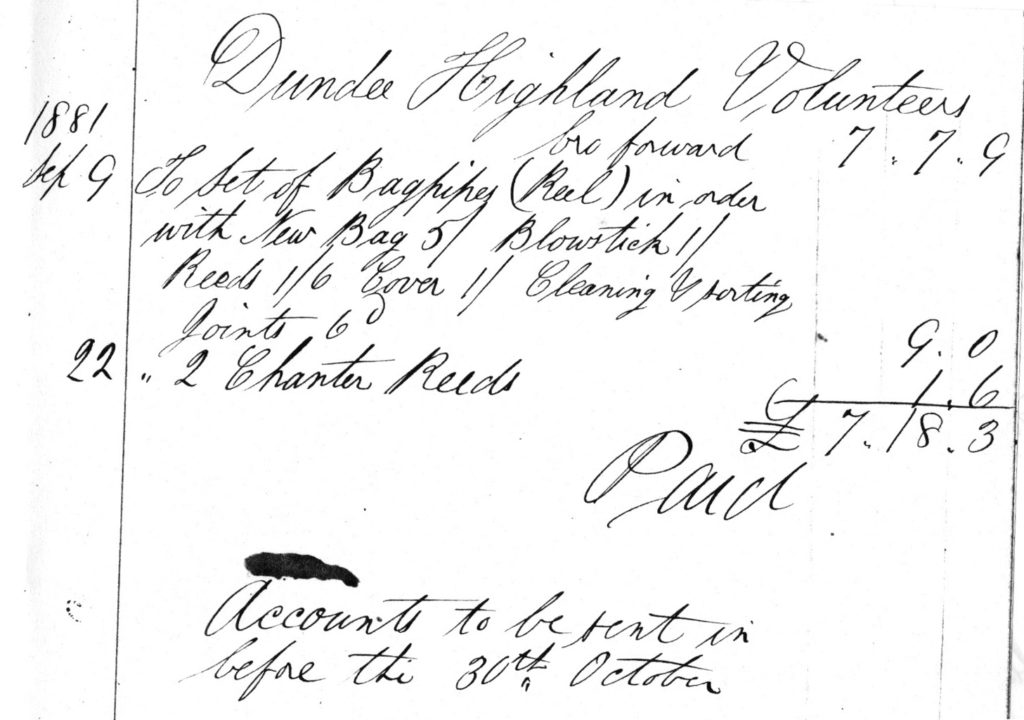 Dundee Highland Volunteers
1881
bro forward 7. 7. 9
Sep 9 To Set of Bagpipes (Reel) in order
with New Bag 5/ Blowstick 1/
Reeds 1/6 Cover 1/ Cleaning & sorting
Joints 6d
9. 0
22 " 2 Chanter Reeds 1. 6
£ 7. 18. 3
Paid
Accounts to be sent in
before the 30th October